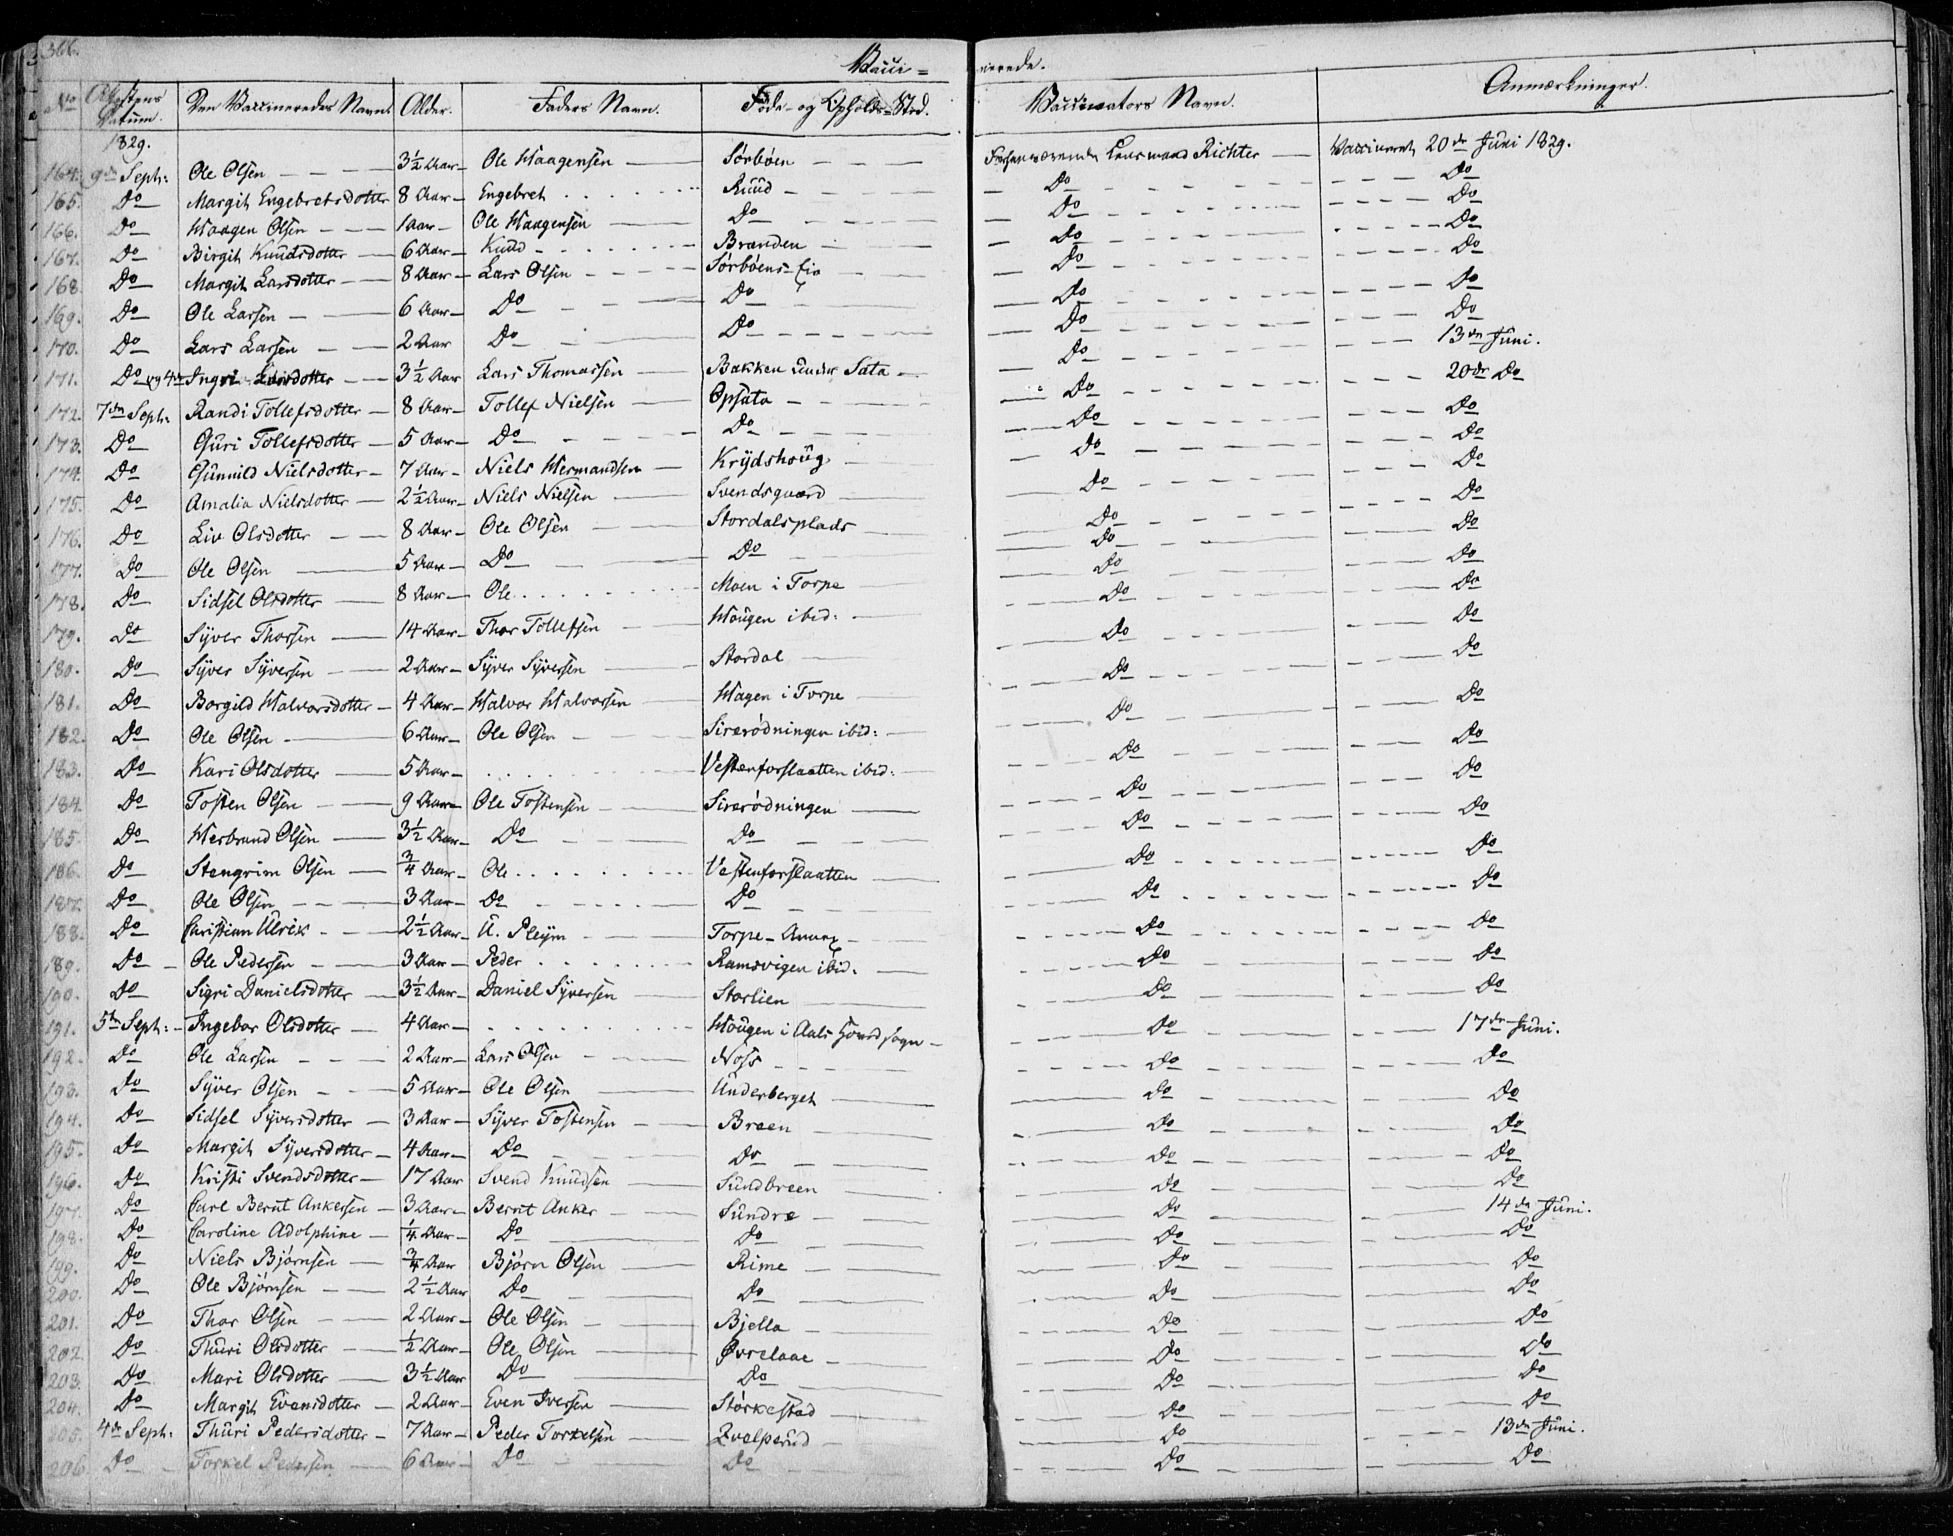 366.
Vacci= nerede.
No Attestens Datum. Den Vaccineredes Navn. Alder. Faders Navn. Føde- og Opholds-Sted. Vaccinators Navn. Anmærkninger.
1829.
164. 9de Septr: Ole Olsen 3½ Aar Ole Haagensen Sørbøen Forhenværende Lensmand Richter Vaccineret 20de Juni 1829.
165. Do Margit Engebretsdotter 8 Aar Engebret . . . Ruud Do Do
166. Do Haagen Olsen 1 Aar Ole Haagensen Do Do Do
167. Do Birgit Knudsdotter 6 Aar Knud Brænden Do Do
168. Do Margit Larsdotter 8 Aar Lars Olsen Sørbøens-Eie Do Do
169. Do Ole Larsen 6 Aar Do Do Do Do
170. Do Lars Larsen 2 Aar Do Do Do Do
171. Do og 4de Ingri Larsdotter 3½ Aar Lars Thomassen Bakken under Sata Do 13de Juni.
172. 7de Septr: Randi Tollefsdotter 8 Aar Tollef Nielsen Opsata Do 20de Do
173. Do Guri Tollefsdotter 5 Aar Do Do Do Do
174. Do Gunnild Nielsdotter 7 Aar Niels Hermandsen Krydshoug Do Do
175. Do Amalia Nielsdotter 2½ Aar Niels Nielsen Svendsgaard Do Do
176. Do Liv Olsdotter 8 Aar Ole Olsen Stordalsplads Do Do
177. Do Ole Olsen 5 Aar Do Do Do Do
178. Do Sidsel Olsdotter 8 Aar Ole . . . Moen i Torpe Do Do
179. Do Syver Thorsen 14 Aar Thor Tollefsen Hougen ibid: Do Do
180. Do Syver Syversen 2 Aar Syver Syversen Stordal Do Do
181. Do Borgild Halvorsdotter 4 Aar Halvor Halvorsen Hagen i Torpe Do Do
182. Do Ole Olsen 6 Aar Ole Olsen Sirerødningen ibid: Do Do
183. Do Kari Olsdotter 5 Aar . . . Vestenforslaatten ibid: Do Do
184. Do Tosten Olsen 9 Aar Ole Tostensen Sirerødningen Do Do
185. Do Herbrand Olsen 3½ Aar Do Do Do Do
186. Do Stengrim Olsen ¾ Aar Ole . . . Vestenforslaatten Do Do
187. Do Ole Olsen 3 Aar Do Do Do Do
188. Do Christian Ulrik 2½ Aar U. Pleym Torpe-Annex Do Do
189. Do Ole Pedersen 3 Aar Peder . . . Ramsvigen ibid: Do Do
190. Do Sigri Danielsdotter 3½ Aar Daniel Syversen Storlien Do Do
191. 5te Septr: Ingebor Olsdotter 4 Aar . . . Hougen i Aals Hovedsogn Do 17de Juni.
192. Do Ole Larsen 2 Aar Lars Olsen Noss Do Do
193. Do Syver Olsen 5 Aar Ole Olsen Underberget Do Do
194. Do Sidsel Syversdotter 3 Aar Syver Tostensen Breen Do Do
195. Do Margit Syversdotter 4 Aar Do Do Do Do
196. Do Kristi Svendsdotter 17 Aar Svend Knudsen Sundbreen Do Do
197. Do Carl Bernt Ankersen 3 Aar Bernt Anker Sundre Do 14de Juni.
198. Do Caroline Adolphine ¼ Aar Do Do Do Do
199. Do Niels Bjørnsen ¾ Aar Bjørn Olsen Rime Do Do
200. Do Ole Bjørnsen 2½ Aar Do Do Do Do
201. Do Thor Olsen 2 Aar Ole Olsen Bjella Do Do
202. Do Thuri Olsdotter ½ Aar Ole Olsen Øvrelaae Do Do
203. Do Mari Olsdotter 3½ Aar Do Do Do Do
204. Do Margit Evensdotter 2 Aar Even Iversen Størkestad Do Do
205. 4de Septr: Thuri Pedersdotter 7 Aar Peder Torkelsen Qvelperud Do 13de Juni.
206. Do Torkel Pedersen 6 Aar Do Do Do Do